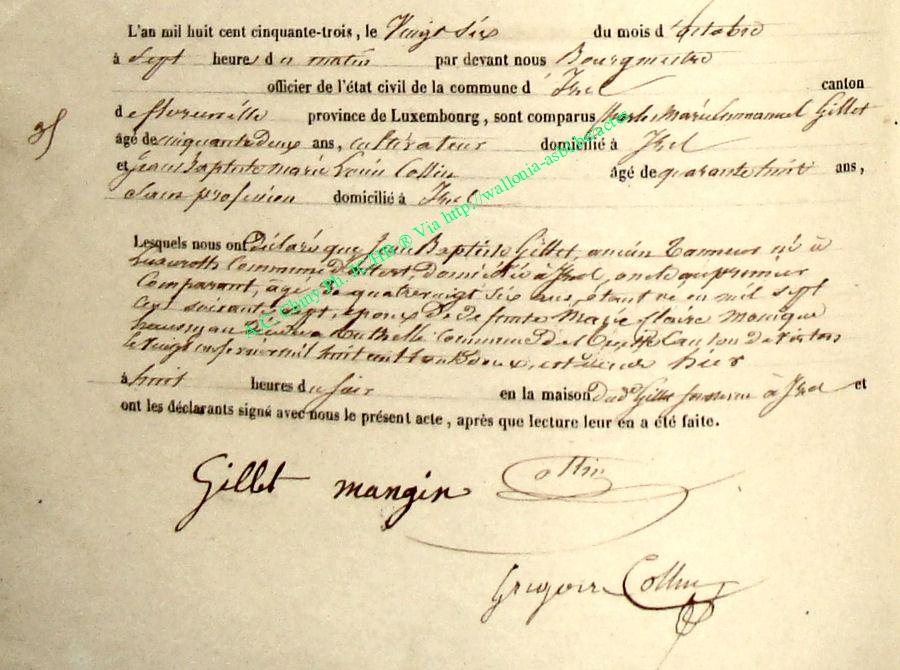 L'an mil huit cent cinquante-trois, le Vingt six du mois d'octobre
à Sept heures du matin par devant nous Bourgmestre
officier de l'état civil de la commune d' Izel canton
de florenville province de Luxembourg, sont comparus Marie Emmanuel Gillet
35
âgé de cinquante deux ans, cultivateur domicilié à Izel
et Jean Baptiste marie Louis Collin âgé de quarante huit ans,
Sans profession domicilié à Izel
Lesquels nous ont Déclaré que Jean Baptiste Gillet, ancien Tanneur né à
commune d'attert, domicilié à Izel, oncle du premier
Comparant, agé de quatrevingt six ans, étant né en mil sept
cent soixante sept, époux de defunte Marie Claire monique
commune de Canton de virton
le vingt mil huit cent trente deux, est décédé hier
à huit heures du soir en la maison du d. Gillet à Izel et
ont les déclarants signé avec nous le présent acte, après que lecture leur en a été faite.
Gillet mangin Collin
Grégoire Collin
A.C. Chiny Ph. H. ® Via http://wallonia-asbl.be/actes